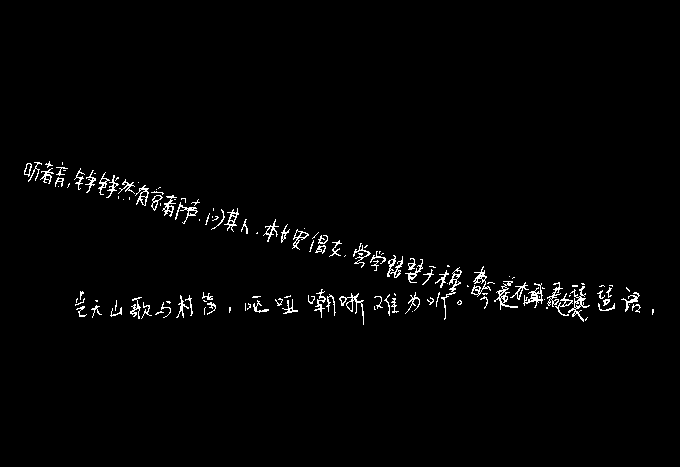 听者音,铮铮然有京都声。问其人,本长安倡女,尝学琵琶于穆、
岂无山歌与村笛,呕哑嘲哳难为听。今琶语,